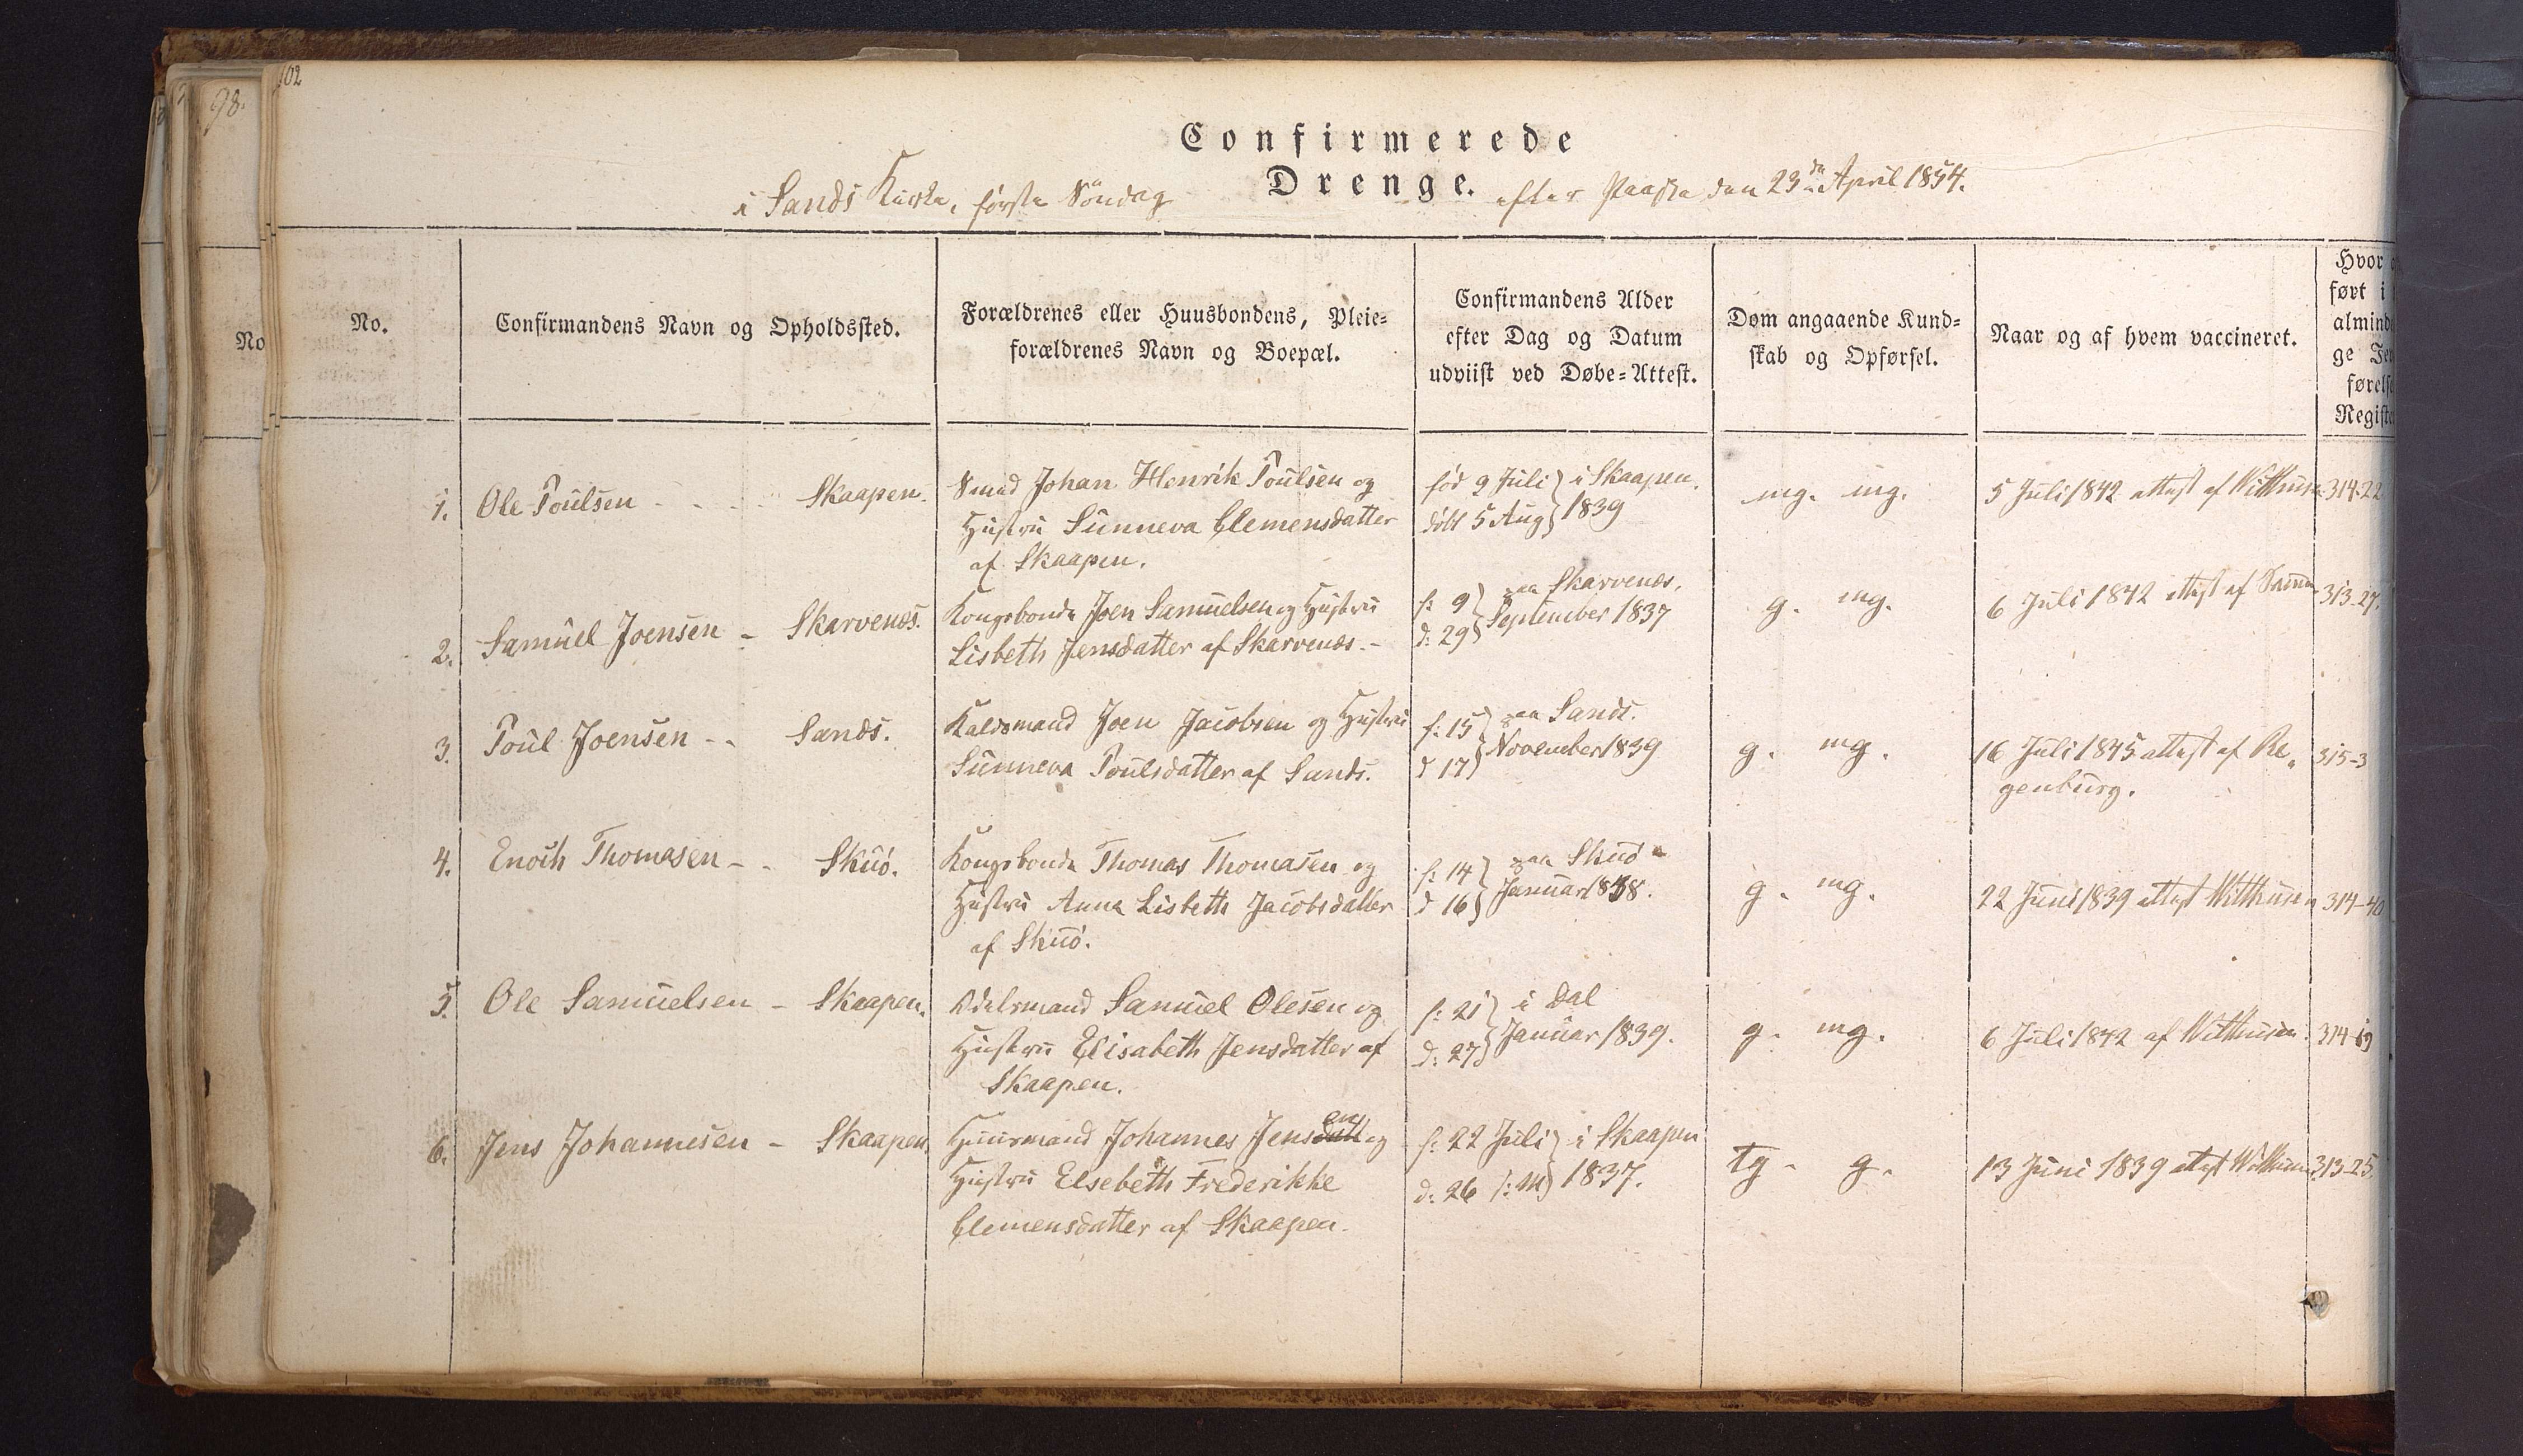 102
98.
Confirmerede
Drenge.
i Sands Kirke, første Söndag efter Paaske den 23de April 1854.
No
No.
Confirmandens Navn og Opholdssted.
Forældrenes eller Huusbondens, Pleie=
forældrenes Navn og Boepæl.
Confirmandens Alder
efter Dag og Datum
udviist ved Døbe=Attest.
Dom angaaende Kund=
skab og Opførsel.
Naar og af hvem vaccineret.
Hvor
ført i
almind
ge Je
førelse
Registe
1. Ole Poulsen - - - - Skaapen.
Smed Johan Henrik Poulsen og
Hustru Sunneva Clemensdatter
af Skaapen.
fød 9 Juli } i Skaapen.
döbt 5 Aug } 1839
mg. mg.
5 Juli 1842 attest af Witthusen
314-22
2. Samuel Joensen - Skarvenæs.
Kongsbonde Joen Samuelsen og Hustru
Lisbeth Jensdatter af Skarvenæs. -
f: 9 } paa Skarvenæs.
d: 29 } September 1837
g. mg.
6 Juli 1842 attest af Samme
313-27.
3. Poul Joensen - - Sands.
Kaldsmand Joen Jacobsen og Hustru
Sunneva Poulsdatter af Sands.
f: 15 } paa Sands.
d 17 } November 1839
g. mg.
16 Juli 1845 attest af Re„
genburg.
315-3
4. Enoch Thomasen - - Skuö.
Kongsbonde Thomas Thomasen og
Hustru Anna Lisbeth Jacobsdatter
af Skuö.
f: 14 } paa Skuö
d 16 } Januar 1838.
g. mg.
22 Juni 1839 attest Witthusen
314-40
5. Ole Samuelsen - Skaapen.
Odelsmand Samuel Olesen og
Hustru Elisabeth Jensdatter af
Skaapen.
f: 21 } i Dal
d: 27 } Januar 1839.
g. mg.
6 Juli 1842 af Witthusen.
314-
6. Jens Johannesen - Skaapen.
Huusmand Johannes Jensen og
Hustru Elsebeth Frederikke
Clemensdatter af Skaapen.
f: 22 Juli } i Skaapen
d: 26 /: M } 1837.
tg - g.
13 Juni 1839 attest Witthusen
313-25.